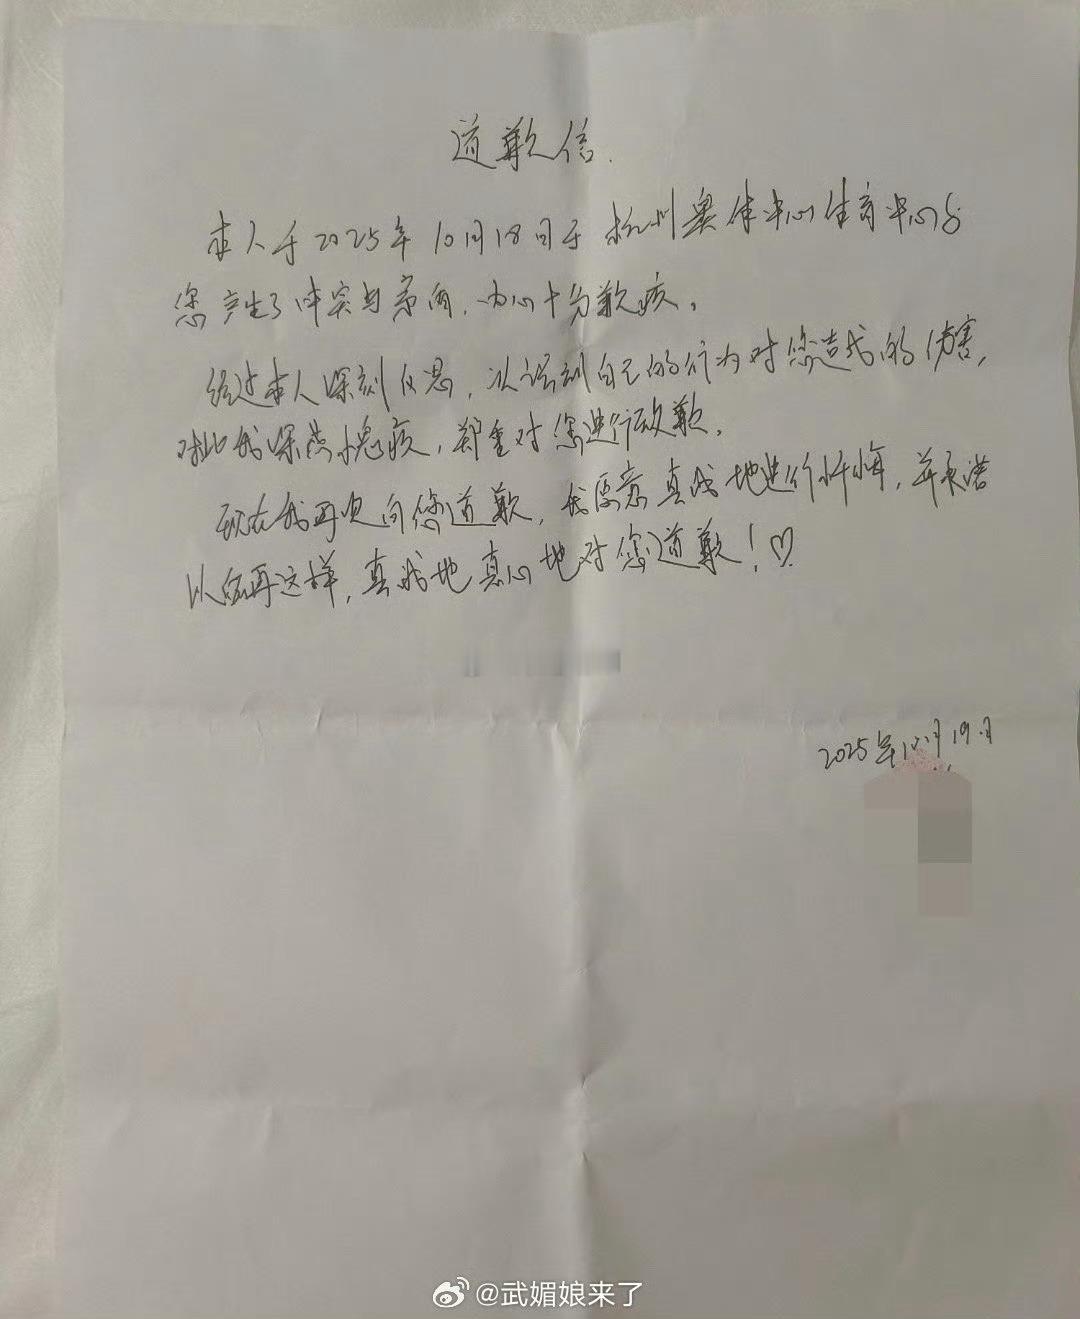 道歉信.
本人于2025年10月18日于杭州奥体中心体育中心与
您产生了冲突与矛盾，内心十分歉疚。
经过本人深刻反思，认识到自己的行为对您造成的伤害，
对此我深感愧疚，郑重对您进行致歉。
现在我再次向您道歉，我愿意真诚地进行忏悔，并承诺
以后再这样，真诚地真心地对您道歉！♡
2025年10月19日
@武媚娘来了